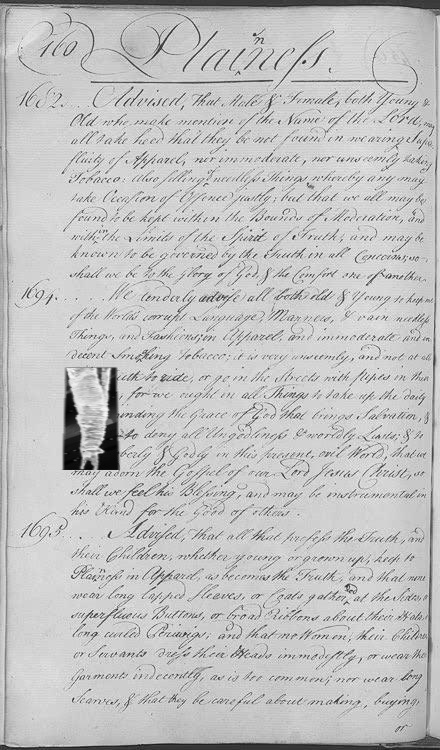 160
Plainness.
1682... Advised, that Male & Female, both Young &
Old who make mention of the Name of the Lord, may
all take heed that they be not found in wearing Super
fluity of Apparel, nor immoderate, nor unseemly taking
Tobacco: Also selling needless Things whereby any may
take Occasion of Offence justly; but that we all may be
found to be kept within the Bounds of Moderation, and
within the Limits of the Spirit of Truth; and may be
known to be governed by the Truth in all Concerns, so
shall we be to the Glory of God, & the Comfort one of another.
1694..... We tenderly advise all both old & Young to keep out
of the World's corrupt Language, Manners, & vain needless
Things, and Fashions, in Apparel, and immoderate and in
decent Smoking Tobacco; it is very unseemly, and not at all
to ride, or go in the Streets with pipes in their
, for we ought in all Things to take up the daily
minding the Grace of God that brings Salvation, &
to deny all Ungodliness & worldly Lusts; & to
soberly & Godly in this present, evil World; that we
may adorn the Gospel of our Lord Jesus Christ, so
shall we feel his Blessing, and may be instrumental in
his Hand for the Good of others.
1695... Advised, That all that profess the Truth, and
their Children, whether young or grown up, keep to
Plainness in Apparel, as becomes the Truth, and that none
wear long lapped Sleeves, or Coats gathered at the Sides, or
superfluous Buttons, or broad Ribbons about their Hats, or
long curled Periwigs; and that no Women, their Children
or Servants dress their Heads immodestly, or wear their
Garments indecently, as is too common; nor wear long
Scarves, & that they be careful about making, buying,
or